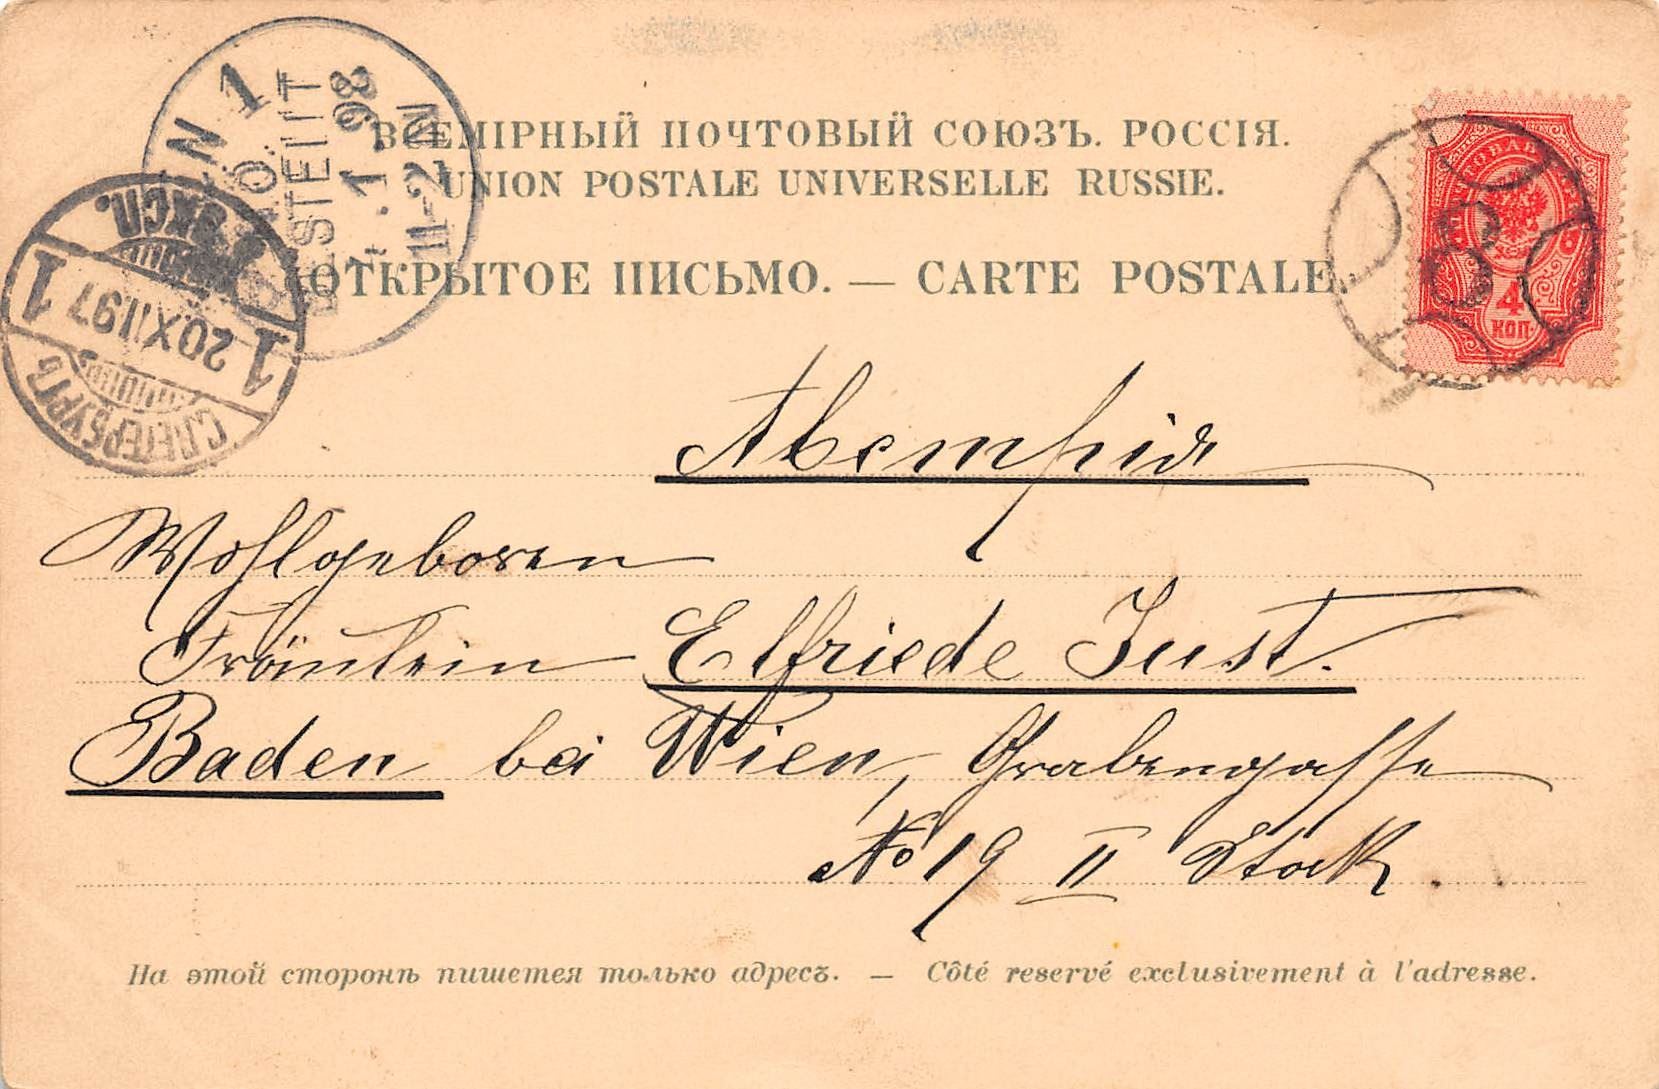 ВСЕМІРНЫЙ ПОЧТОВЫЙ СОЮЗЪ. РОССІЯ.
UNION POSTALE UNIVERSELLE RUSSIE.
ОТКРЫТОЕ ПИСЬМО. — CARTE POSTALE.
N 1
BESTELLT
1. 98
11-2 N
С.ПЕТЕРБУРГЪ
1 20.XII.97 1
ЭКСП.
4
КОП.
Австрія
Wohlgeboren
Fräulein Elfriede Just.
Baden bei Wien, Grabengasse
No 19 II Stock.
На этой сторонѣ пишется только адресъ. — Côté reservé exclusivement à l'adresse.